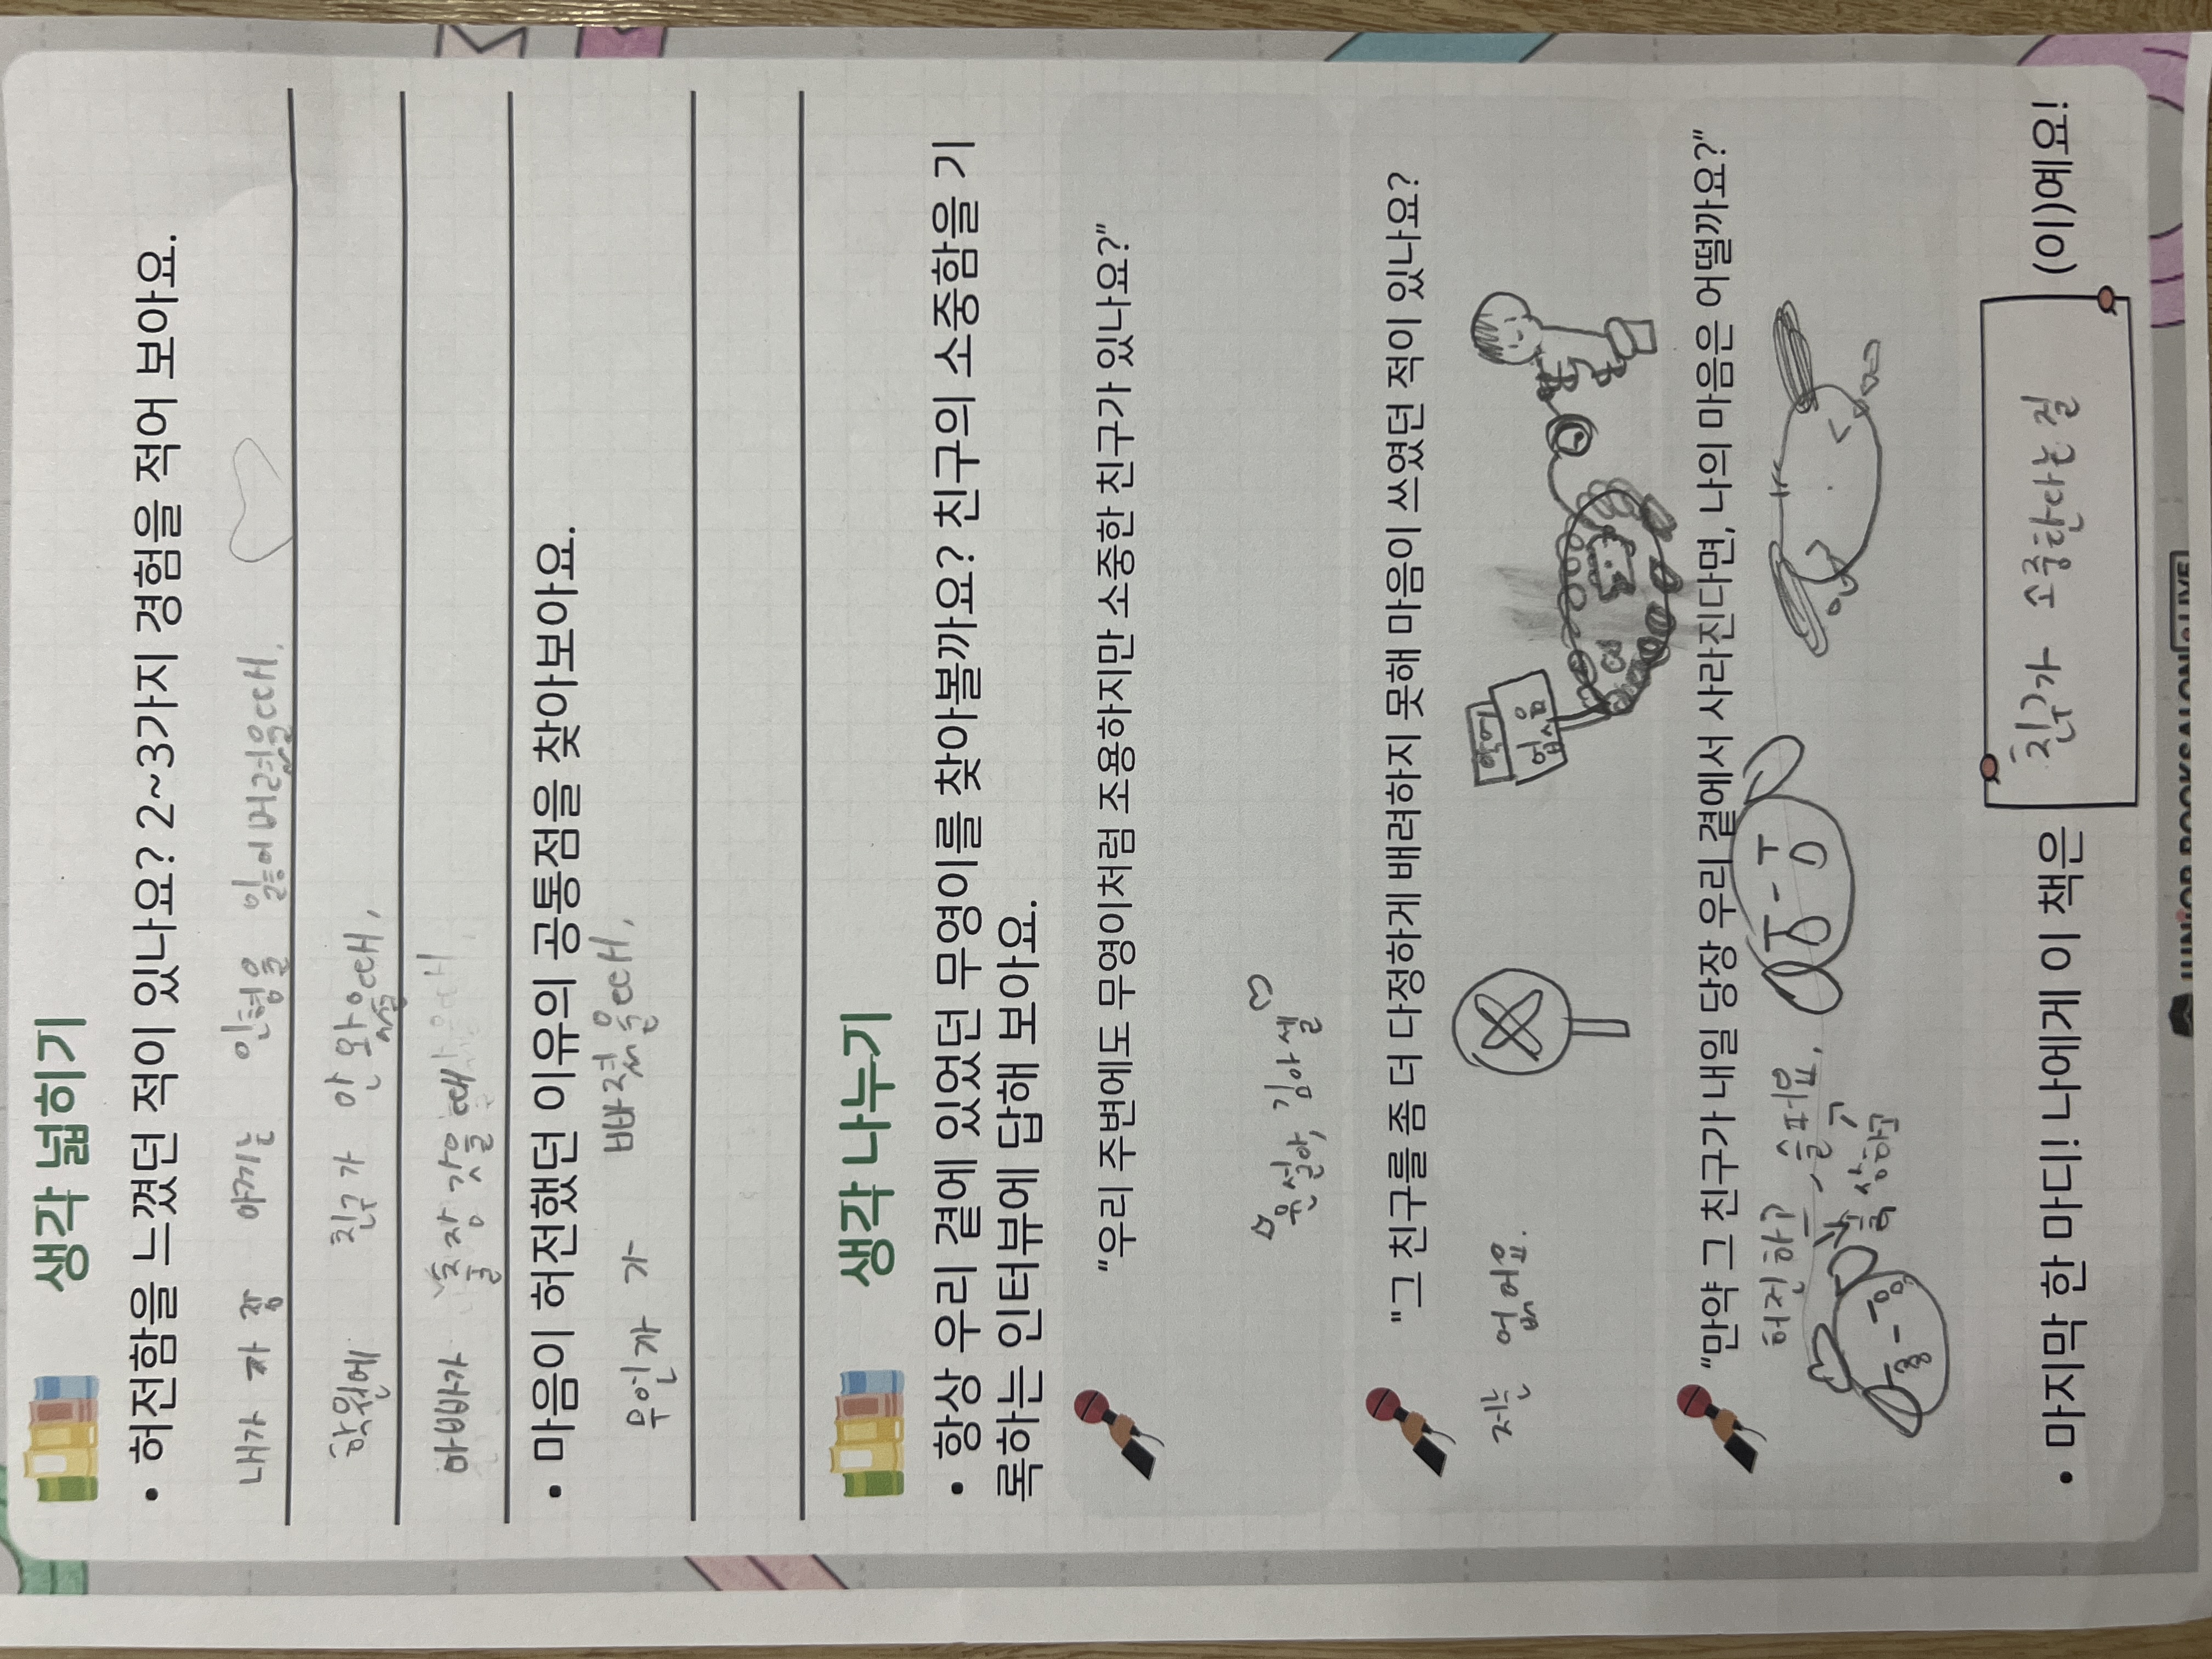 생각 넓히기
• 허전함을 느꼈던 적이 있나요? 2~3가지 경험을 적어 보아요.
내가 가장 아끼는 인형을 잃어버렸을때.
학원에 친구가 안 왔을때,
아빠가 출장 갔을 때
• 마음이 허전했던 이유의 공통점을 찾아보아요.
무언가 가 빠졌을때,
생각 나누기
• 항상 우리 곁에 있었던 무영이를 찾아볼까요? 친구의 소중함을 기
록하는 인터뷰에 답해 보아요.
"우리 주변에도 무영이처럼 조용하지만 소중한 친구가 있나요?"
윤설아, 김아셀
"그 친구를 좀 더 다정하게 배려하지 못해 마음이 쓰였던 적이 있나요?
저는 없어요.
악어
없음
"만약 그 친구가 내일 당장 우리 곁에서 사라진다면, 나의 마음은 어떨까요?"
허전하고, 슬퍼요.
속상하고
• 마지막 한 마디! 나에게 이 책은 친구가 소중한다는 걸 (이)예요!
JUNIOR BOOKSALON OLIVE